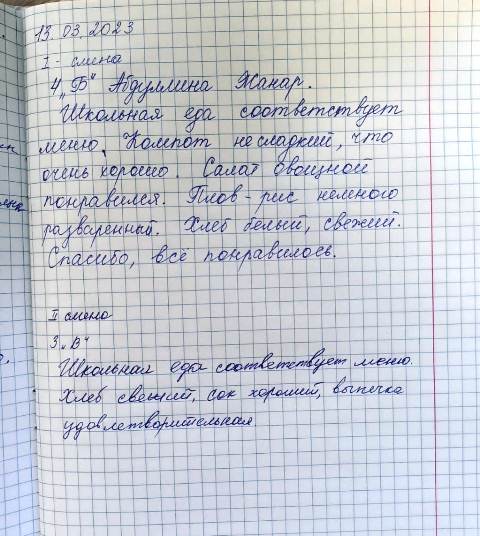 13.03.2023
I - смена
4 „Б" Абдуллина Жанар.
Школьная еда соответствует
меню. Компот несладкий, что
очень хорошо. Салат овощной
понравился. Плов - рис немного
разваренный. Хлеб белый, свежий.
Спасибо, всё понравилось.
II смена
3 „В"
Школьная еда соответствует меню.
Хлеб свежий, сок хороший, выпечка
удовлетворительная.